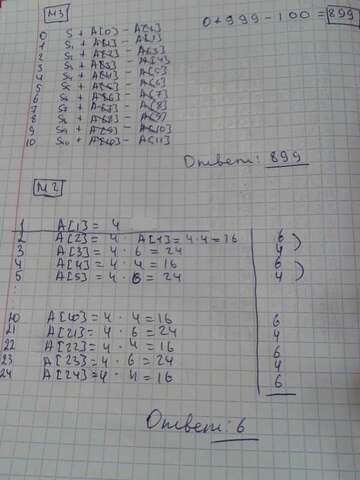 №3
0+999-100=899
0 S + A[0] - A[1]
1 S₁ + A[1] - A[2]
2 S₂ + A[2] - A[3]
3 S₃ + A[3] - A[4]
4 S₄ + A[4] - A[5]
5 S₅ + A[5] - A[6]
6 S₆ + A[6] - A[7]
7 S₇ + A[7] - A[8]
8 S₈ + A[8] - A[9]
9 S₉ + A[9] - A[10]
10 S₁₀ + A[10] - A[11]
Ответ: 899
№2
1 A[1] = 4
2 A[2] = 4 · A[1] = 4·4 = 16 6
3 A[3] = 4 · 6 = 24 4
4 A[4] = 4 · 4 = 16 6
5 A[5] = 4 · 6 = 24 4
20 A[20] = 4 · 4 = 16 6
21 A[21] = 4 · 6 = 24 4
22 A[22] = 4 · 4 = 16 6
23 A[23] = 4 · 6 = 24 4
24 A[24] = 4 · 4 = 16 6
Ответ: 6